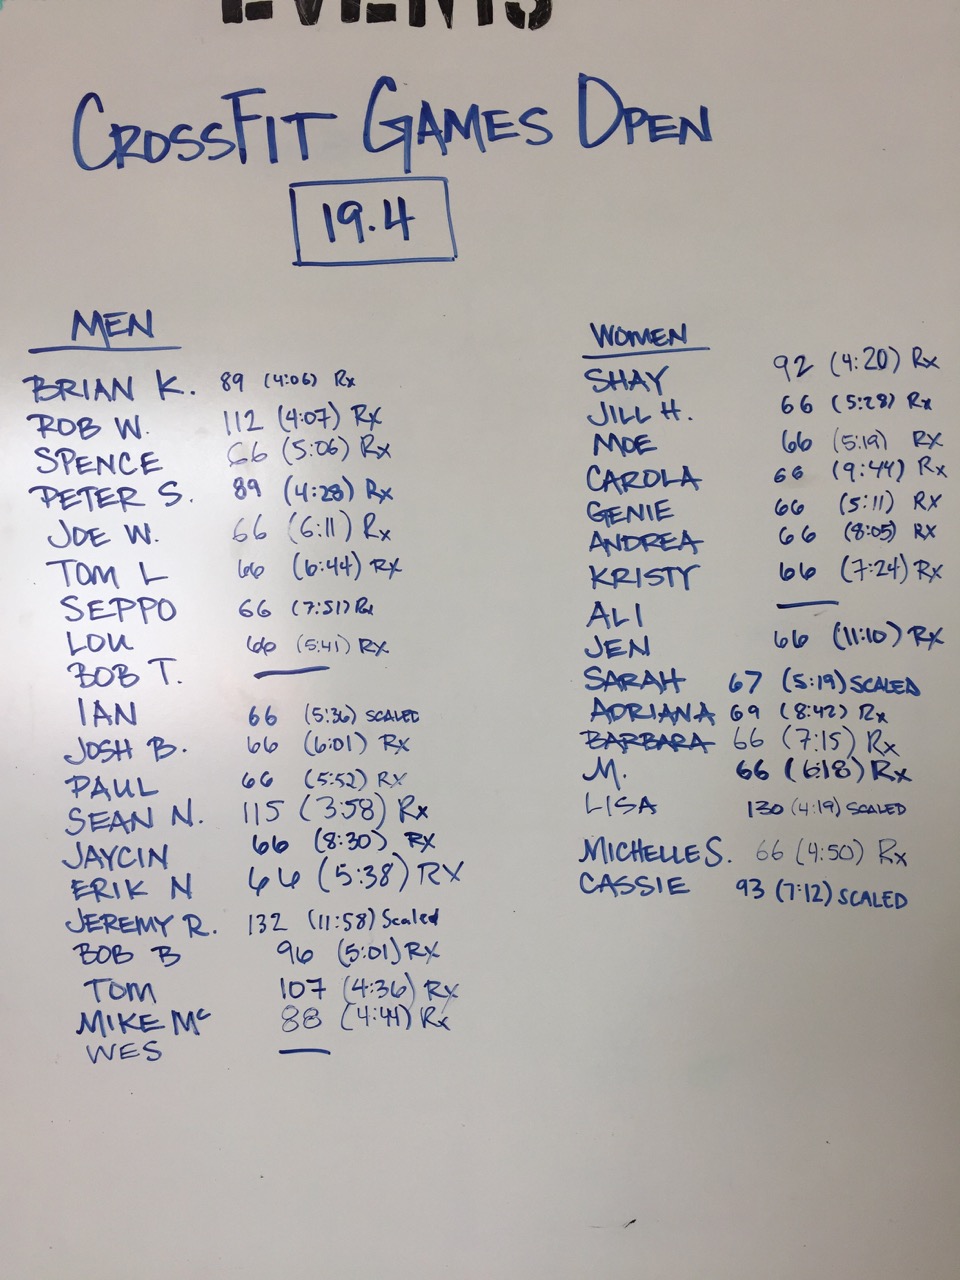 EVENTS
CROSSFIT GAMES OPEN
19.4
MEN
BRIAN K. 89 (4:06) Rx
ROB W. 112 (4:07) Rx
SPENCE 66 (5:06) Rx
PETER S. 89 (4:28) Rx
JOE W. 66 (6:11) Rx
TOM L 66 (6:44) Rx
SEPPO 66 (7:51) Rx
LOU 66 (5:41) Rx
BOB T.
IAN 66 (5:36) SCALED
JOSH B. 66 (6:01) Rx
PAUL 66 (5:52) Rx
SEAN N. 115 (3:58) Rx
JAYCIN 66 (8:30) Rx
ERIK N 66 (5:38) RX
JEREMY R. 132 (11:58) Scaled
BOB B 96 (5:01) Rx
TOM 107 (4:36) Rx
MIKE Mc 88 (4:44) Rx
WES
WOMEN
SHAY 92 (4:20) Rx
JILL H. 66 (5:28) Rx
MOE 66 (5:19) RX
CAROLA 66 (9:44) Rx
GENIE 66 (5:11) RX
ANDREA 66 (8:05) RX
KRISTY 66 (7:24) Rx
ALI
JEN 66 (11:10) RX
SARAH 67 (5:19) SCALED
ADRIANA 69 (8:42) Rx
BARBARA 66 (7:15) Rx
M. 66 (6:18) Rx
LISA 130 (4:19) SCALED
MICHELLE S. 66 (4:50) Rx
CASSIE 93 (7:12) SCALED